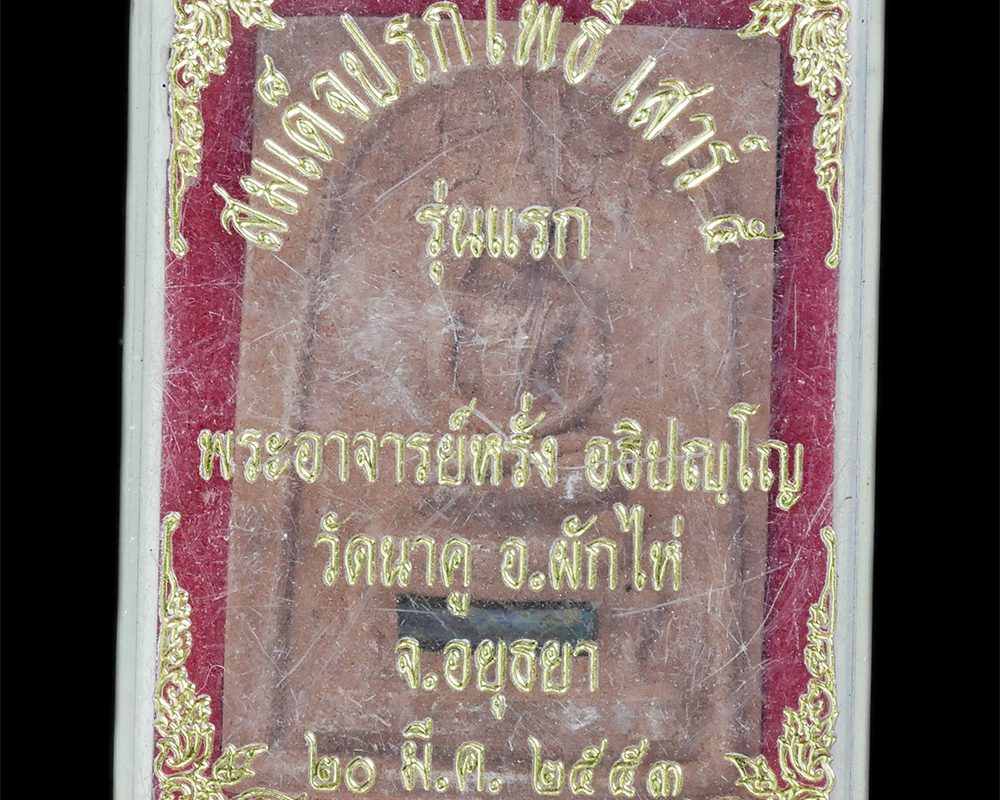 สมเด็จปรกโพธิ์ เสาร์ ๕
รุ่นแรก
พระอาจารย์หรั่ง อธิปญฺโญ
วัดนาคู อ.ผักไห่
จ.อยุธยา
๒๐ มี.ค. ๒๕๕๓